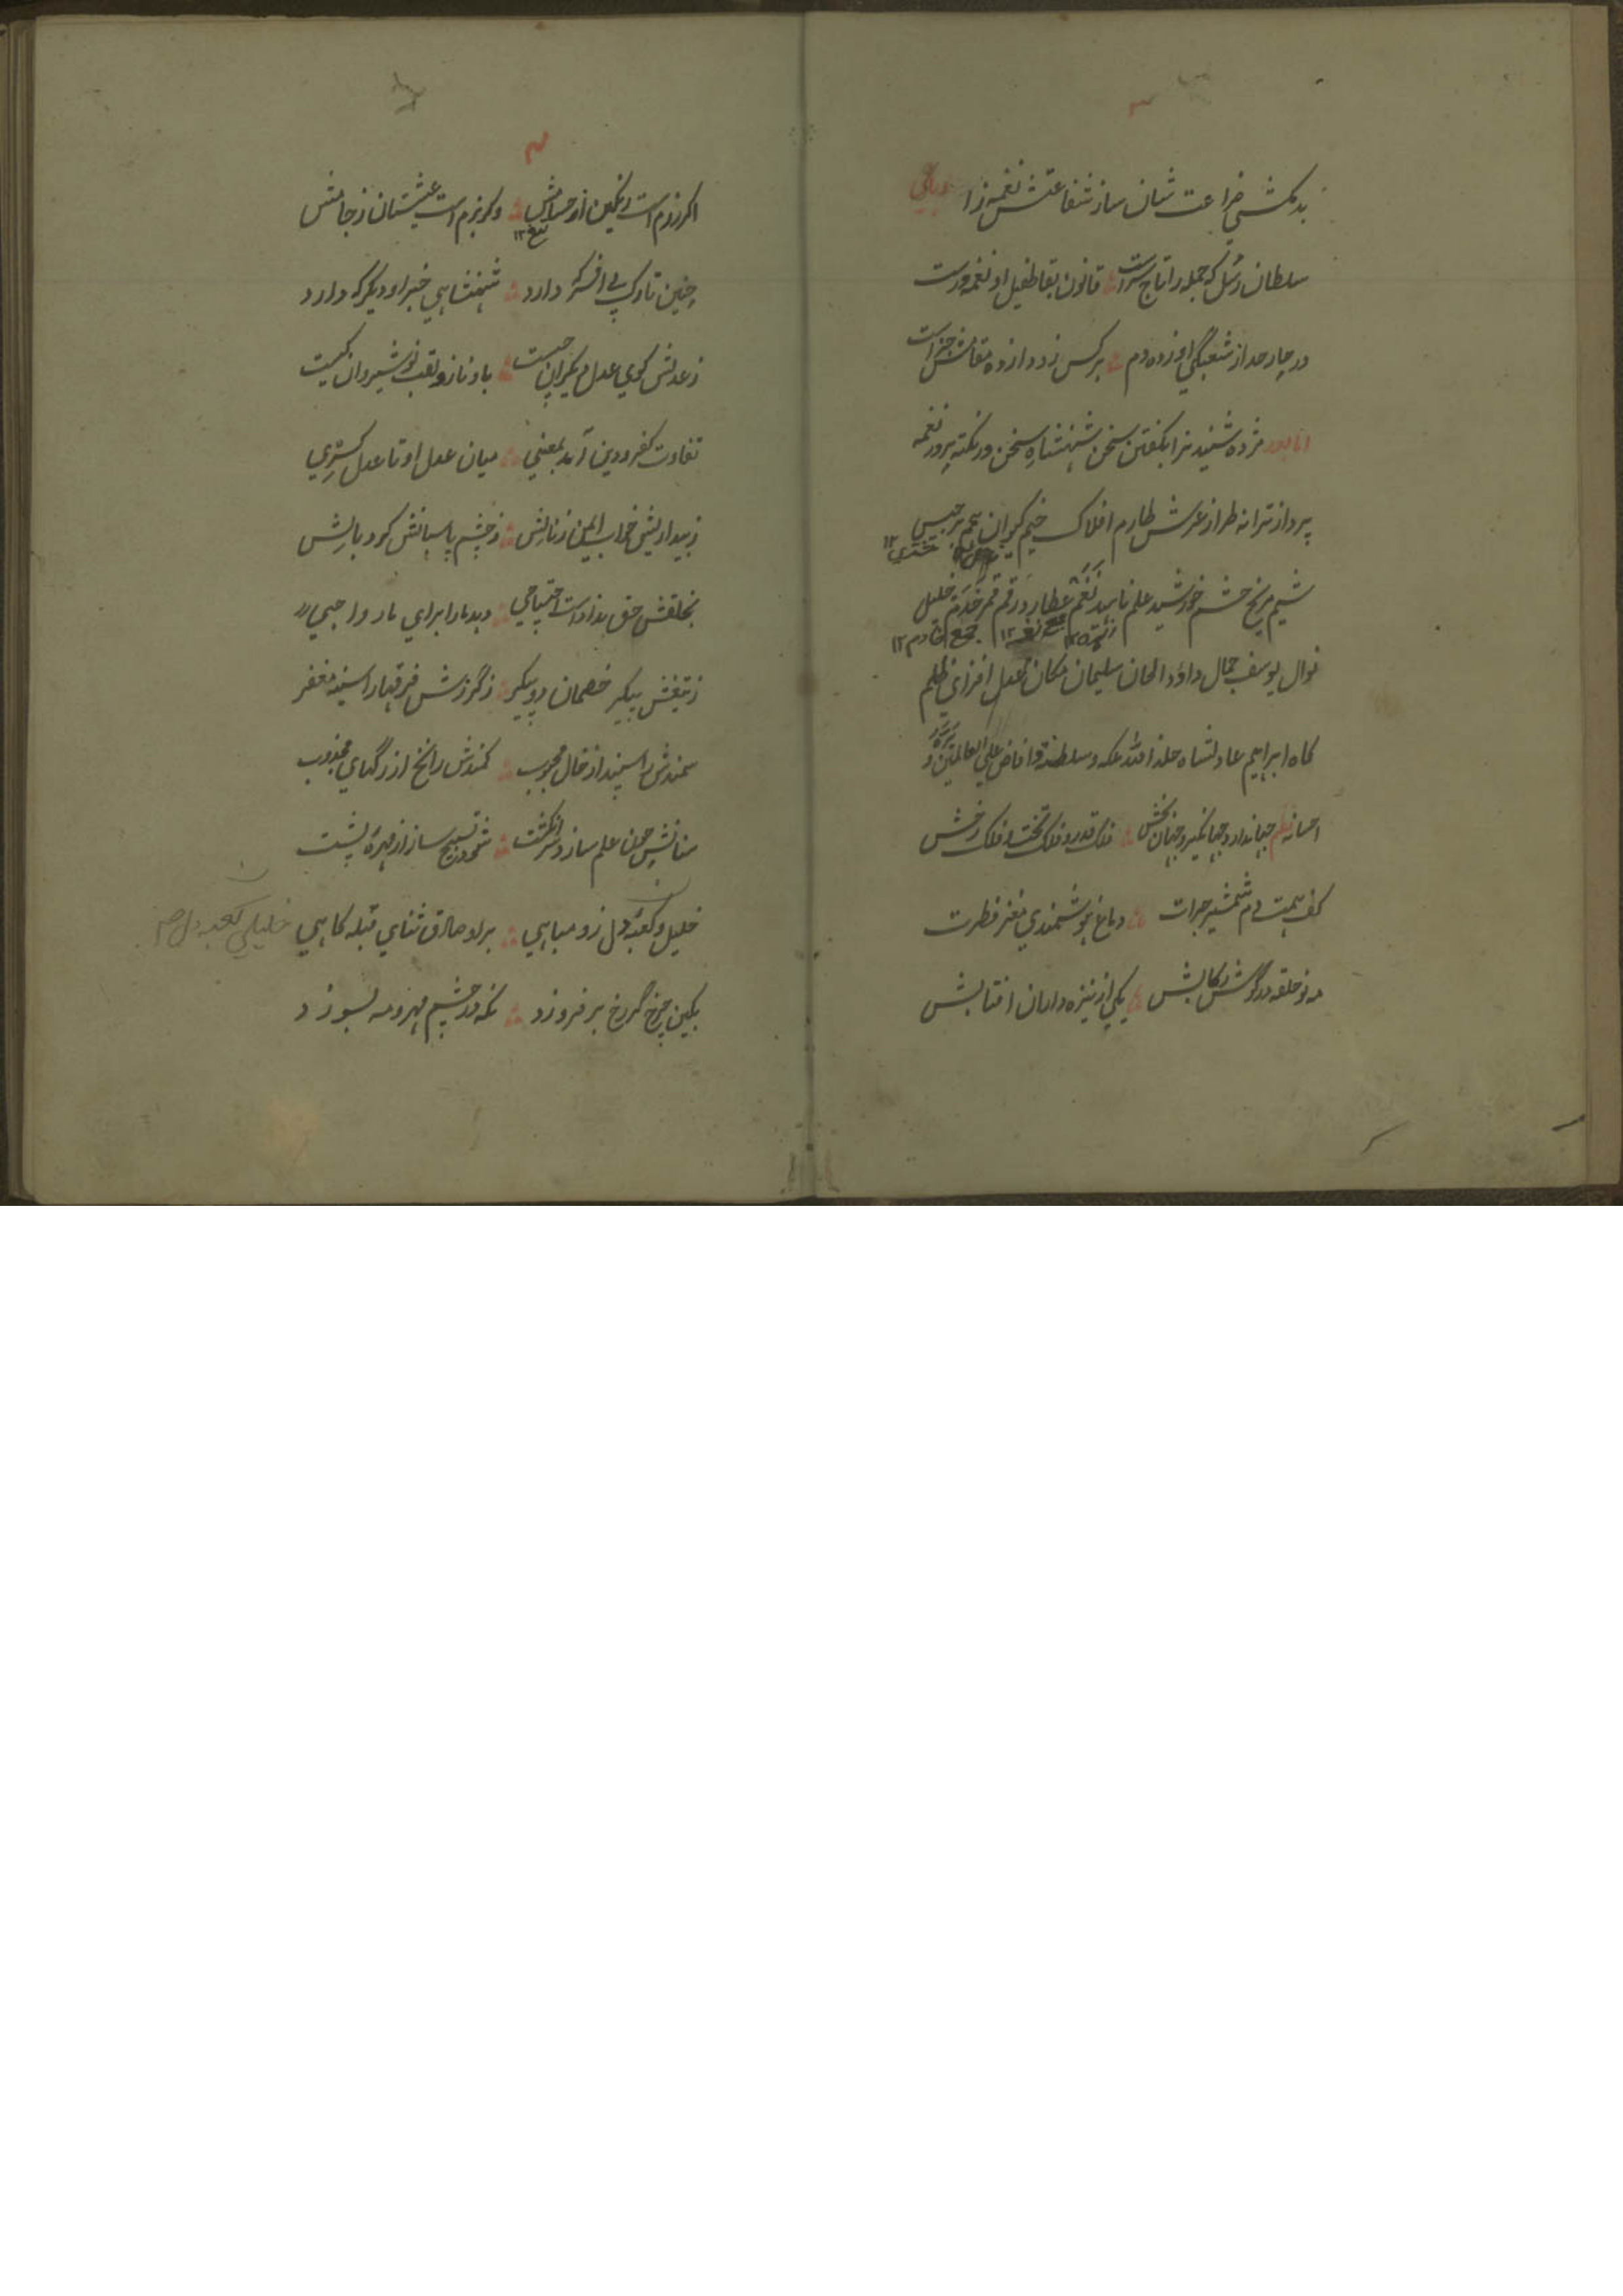 بدلکشی ضراعت شان ساز شفاعتش نغمه زا رباعی
سلطان رسل که جمله را تاج سرست قانون بقا طفیل او نغمه ورست
در چار حد از شعبگی او زده دم هر کس زد دوازده مقامش خبر است
اما بعد مژده شنیدن را بگفتن سخن شهنشاه سخن ور نکته پرور نغمه
پرداز ترانه طراز عرش طارم افلاک خیم کیوان همم برجیس
شیم مریخ حشم خورشید علم ناهید نغم عطارد رقم قمر خدم خلیل
نوال یوسف جمال داؤد الحان سلیمان مکان عدل افزای ظلم
کاه ابراهیم عادلشاه خلد الله ملکه و سلطنته و افاض علی العالمین بره و
احسانه نظم جهاندار و جهانگیر و جهان بخش فلک قدر و فلک تخت و فلک رخش
کف همت دم شمشیر جرات دماغ هوشمندی مغز فطرت
مه نو حلقه در گوش رکابش یکی از نیزه داران آفتابش
۴
اگر رزم است رنگین از حسامش وگر بزم است عیشستان ز جامش
چنین تارک پی افسر که دارد شهنشاهی جز او دیگر که دارد
ز عدلش گوی عدل دیگران چیست باو نازد لقب نوشیروان کیست
تفاوت کفر و دین آمد بمعنی میان عدل او تا عدل کسری
ز بیداریش خواب ایمن ز نازش ز چشم پاسبانش کرد بالش
بخلقش حق نداد است احتیاجی دهد ما را برای ما رواجی
ز تیغش پیکر خصمان دو پیکر ز گرزش فرقها را سینه مغفر
سمندش را سپند از خال محبوب کمندش را نخ از رگهای مجذوب
سنانش چون علم سازد سر انگشت شود تسبیح ساز از مهره پشت
خلیل و کعبه دل زو مباهی برو صادق ثنای قبله گاهی
خلیلی کعبه دل
بکین چرخ گر رخ برفروزد نگه در چشم مهر و مه بسوزد